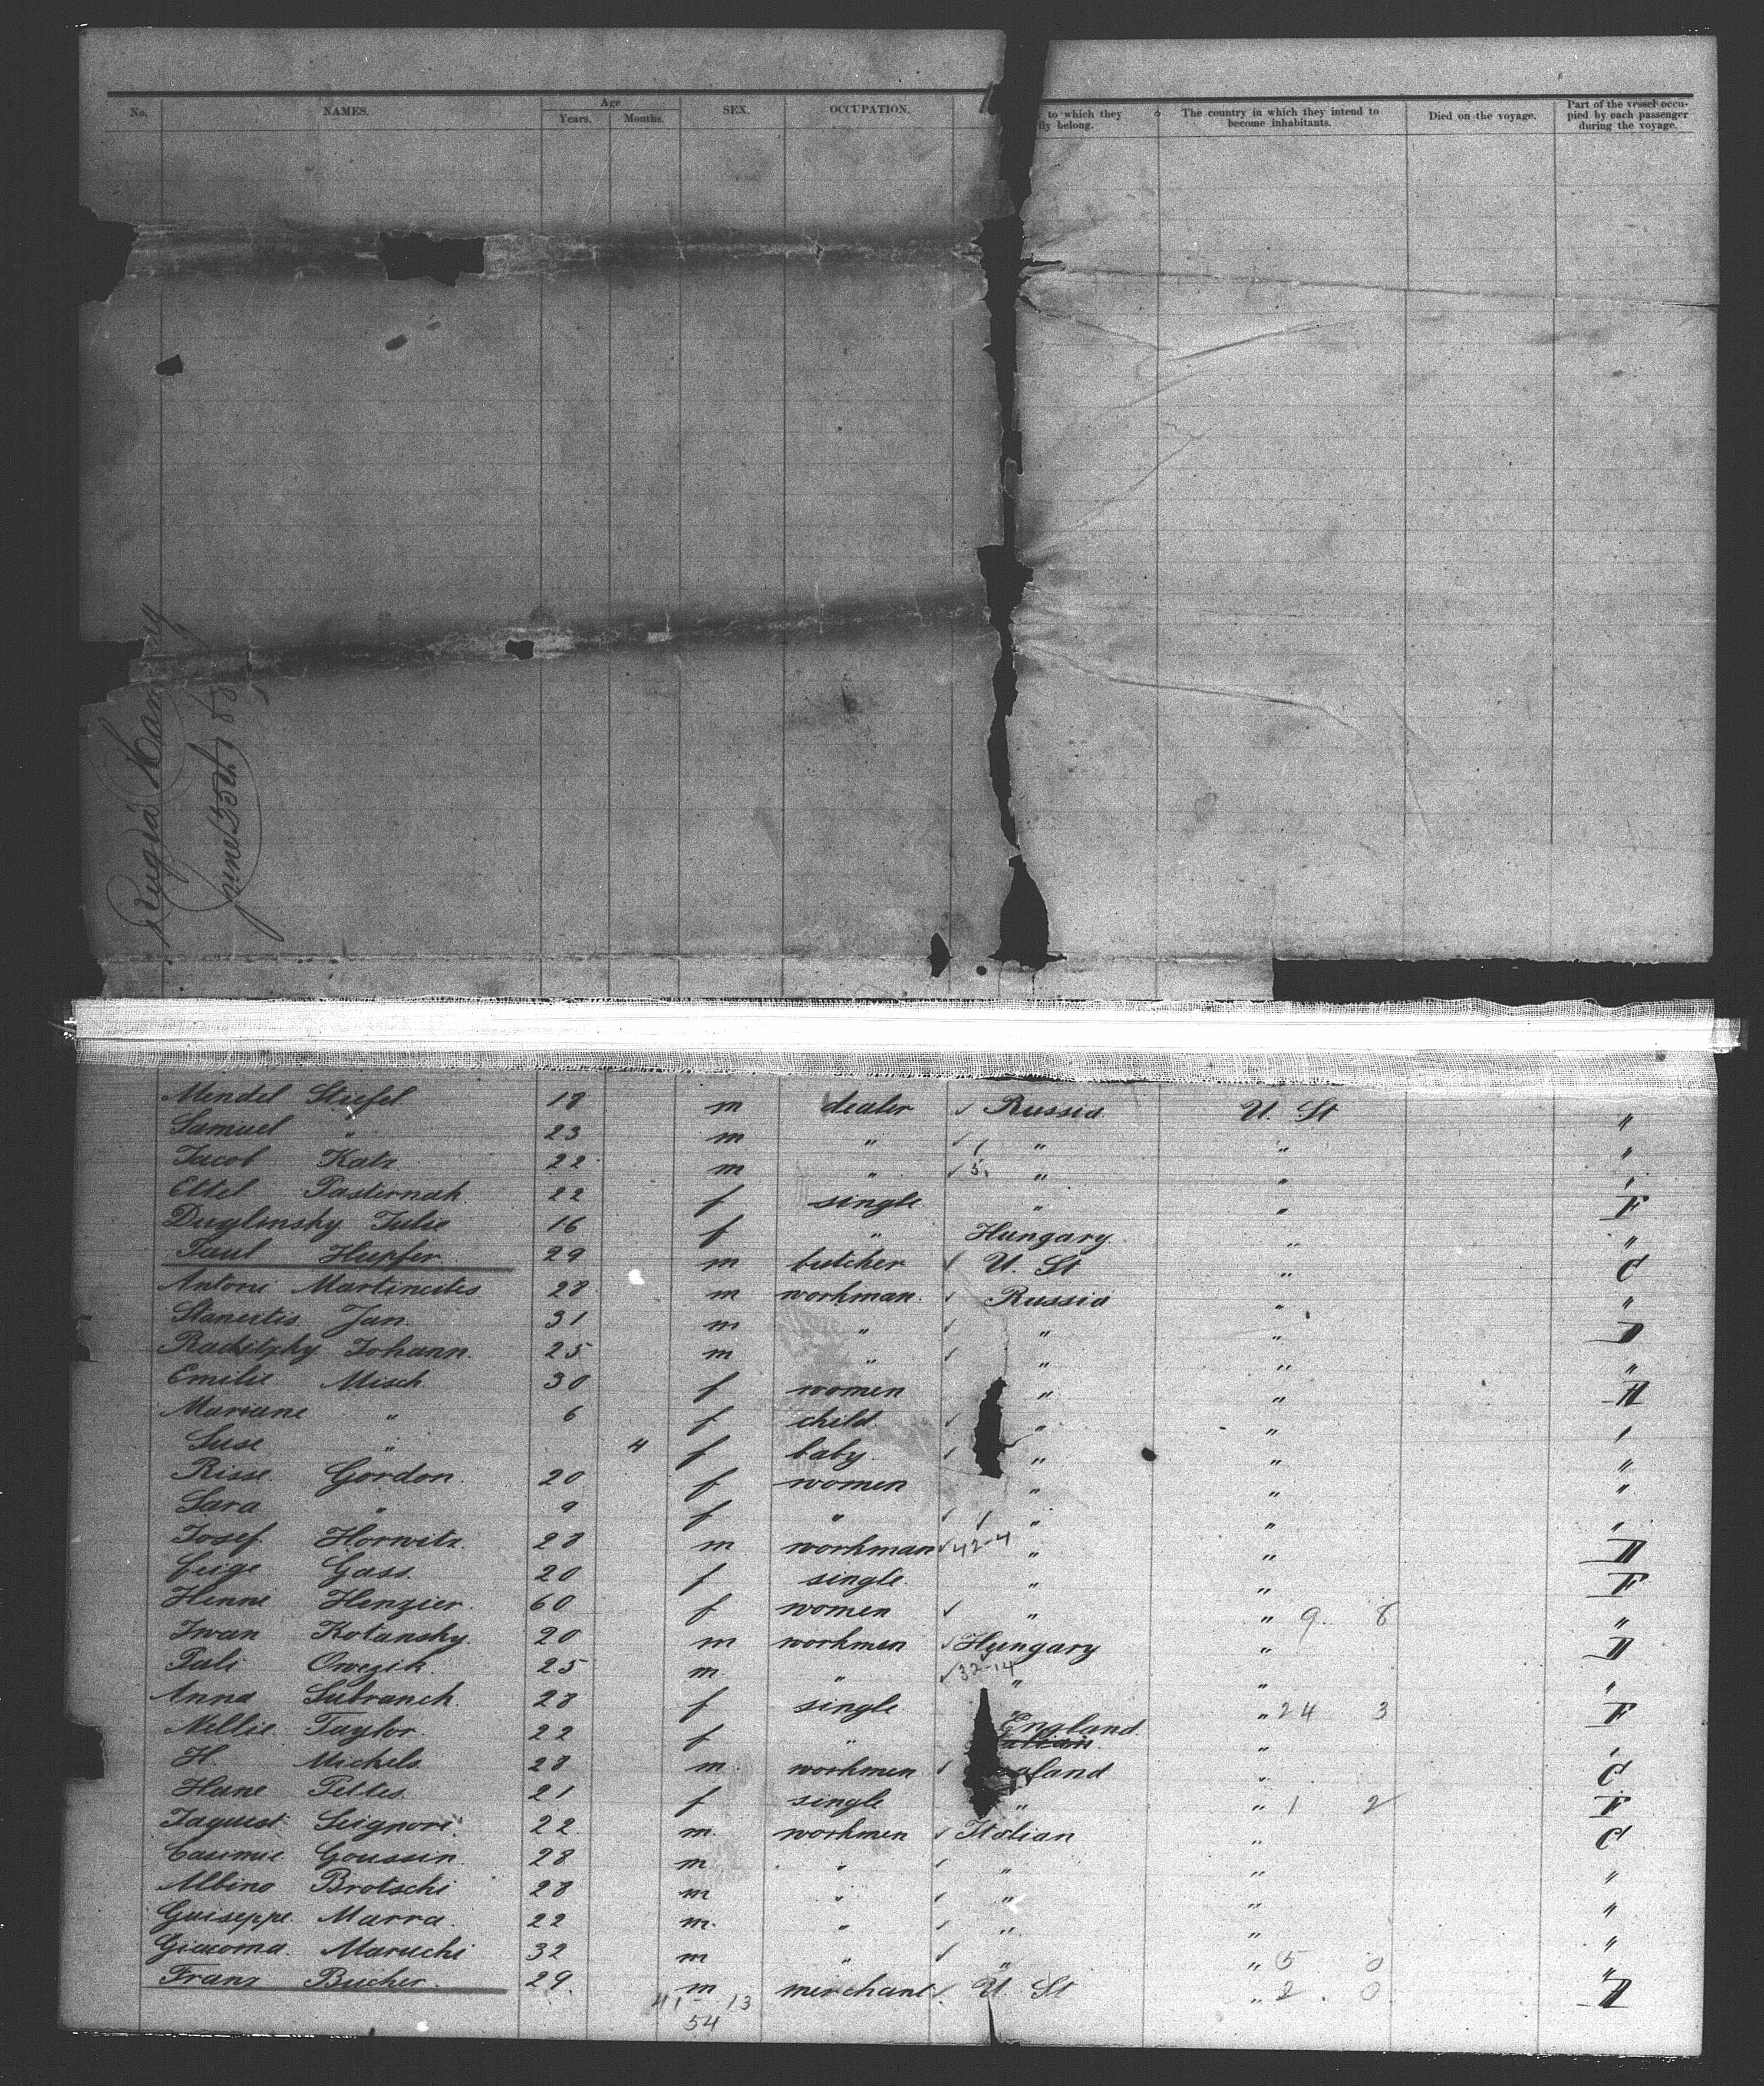 No. NAMES. Age Years. Months. SEX. OCCUPATION. to which they ily belong. The country in which they intend to become inhabitants. Died on the voyage. Part of the vessel occupied by each passenger during the voyage.
Rugia Hamburg
June 30th 85
Mendel Stiefel 18 m dealer ✓ Russia U. St "
Samuel " 23 m " ✓ " " "
Jacob Katz 22 m " ✓ 5, " " "
Ettel Pasternak 22 f single " " F
Duglinsky Julie 16 f " Hungary " "
Paul Hupfer 29 m butcher ✓ U. St " C
Antoni Martincites 28 m workman ✓ Russia " "
Staneitis Jan 31 m " ✓ " " D
Raditzky Johann 25 m " ✓ " " "
Emilie Misch 30 f women " " H
Mariane " 6 f child ✓ " " "
Suse " 4 f baby ✓ " " "
Risse Gordon 20 f women " " "
Sara " 9 f " ✓ " " "
Josef Horwitz 28 m workman ✓ 42-4 " " D
Feige Gass 20 f single " " F
Henne Henzier 60 f women ✓ " " 9 8 "
Iwan Kotansky 20 m workmen ✓ Hungary " D
Pali Owezik 25 m " ✓ 32-14 " " "
Anna Subranch 28 f single " " 24 3 F
Nellie Taylor 22 f " England " "
H. Michels 28 m workmen ✓ land " C
Hane Pettes 21 f single " " 1 2 F
Jaquest Seignori 22 m workmen ✓ Italian " C
Casimie Goussin 28 m " ✓ " " "
Albino Brotschi 28 m " ✓ " " "
Guiseppe Marra 22 m " ✓ " " "
Giacoma Maruchi 32 m " ✓ " " 5 0 "
Franz Bucher 29 m merchant ✓ U. St " 2 0 D
41 - 13
54